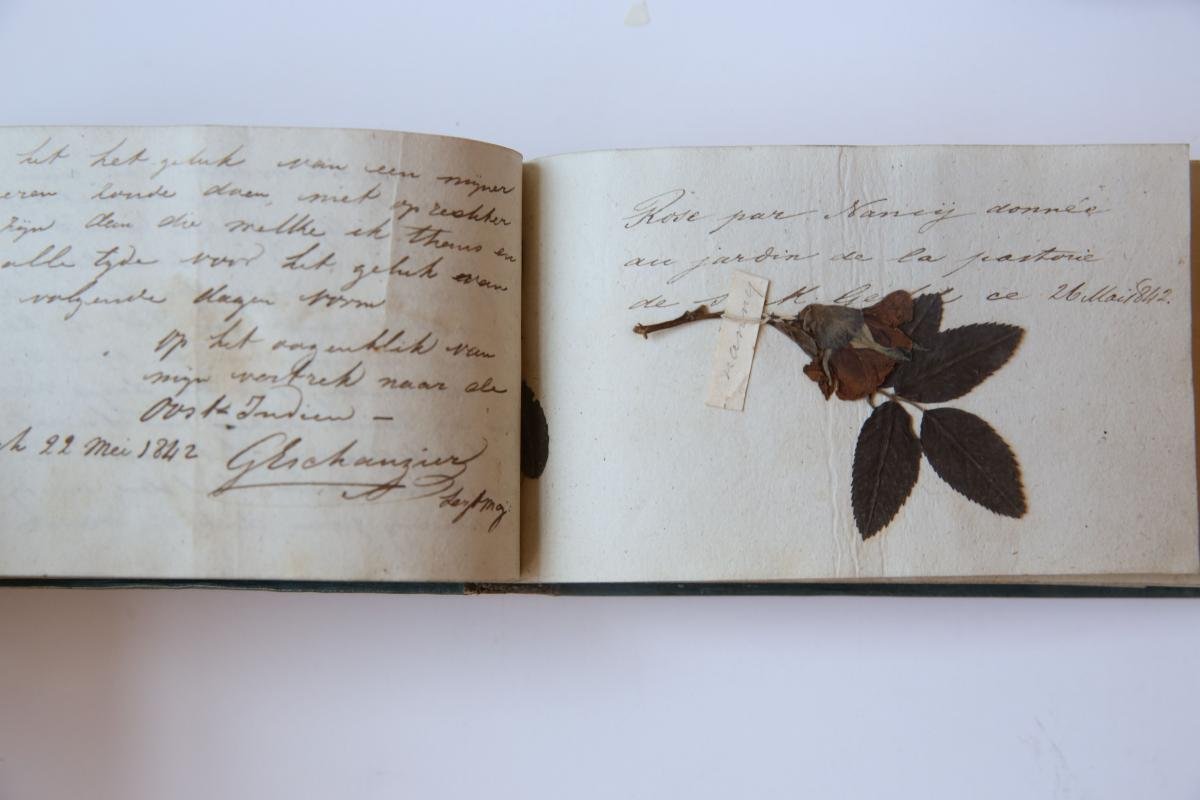 het geluk van een mijner
eren konde doen, niet opregter
zijn dan die welke ik thans en
alle tyde voor het geluk van
volgende dagen vorm
op het oogenblik van
mijn vertrek naar de
Oost Indien –
22 Mei 1842 GEschauzier
Rose par Nancij donnée
au jardin de la pastorie
de ce 26 Mai 1842.
nanny